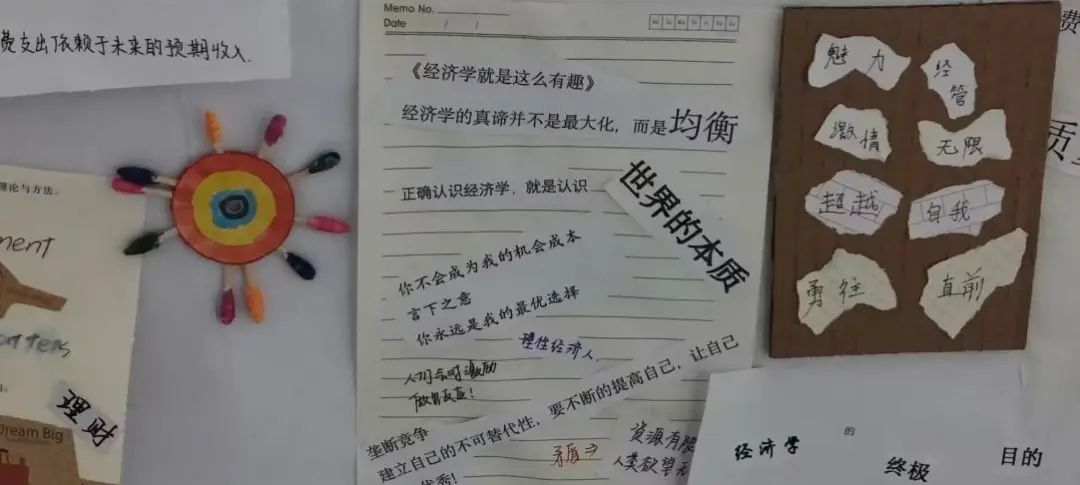 费支出依赖于未来的预期收入.
理论与方法。
Dream Big
Memo No.
Date / /
《经济学就是这么有趣》
经济学的真谛并不是最大化，而是均衡
正确认识经济学，就是认识
世界的本质
你不会成为我的机会成本
言下之意
你永远是我的最优选择
理性经济人
人们会对激励
做出反应!
垄断竞争
建立自己的不可替代性，要不断的提高自己，让自己
优秀!
矛盾⇒
资源有限
人类欲望无
魅力
经管
激情
无限
超越
自我
勇往
直前
费
质
经济学 的
终极
目的